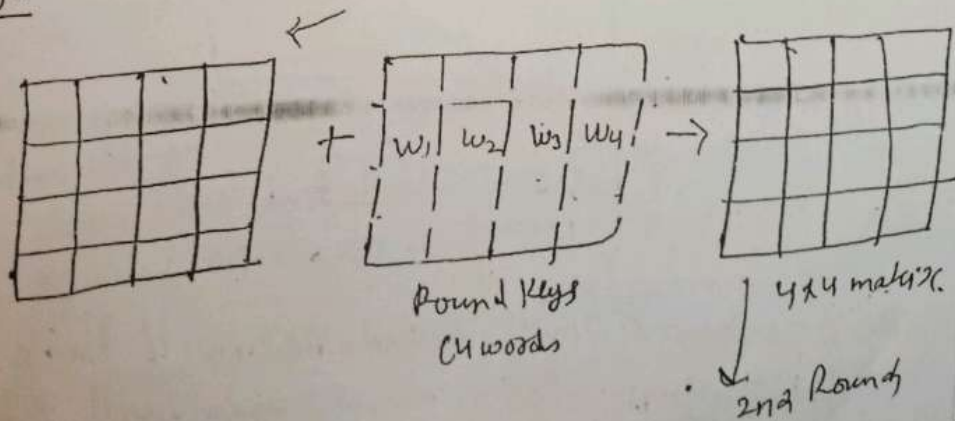 + W1 W2 W3 W4 →
Round Keys
(4 words
4x4 matrix.
2nd Round